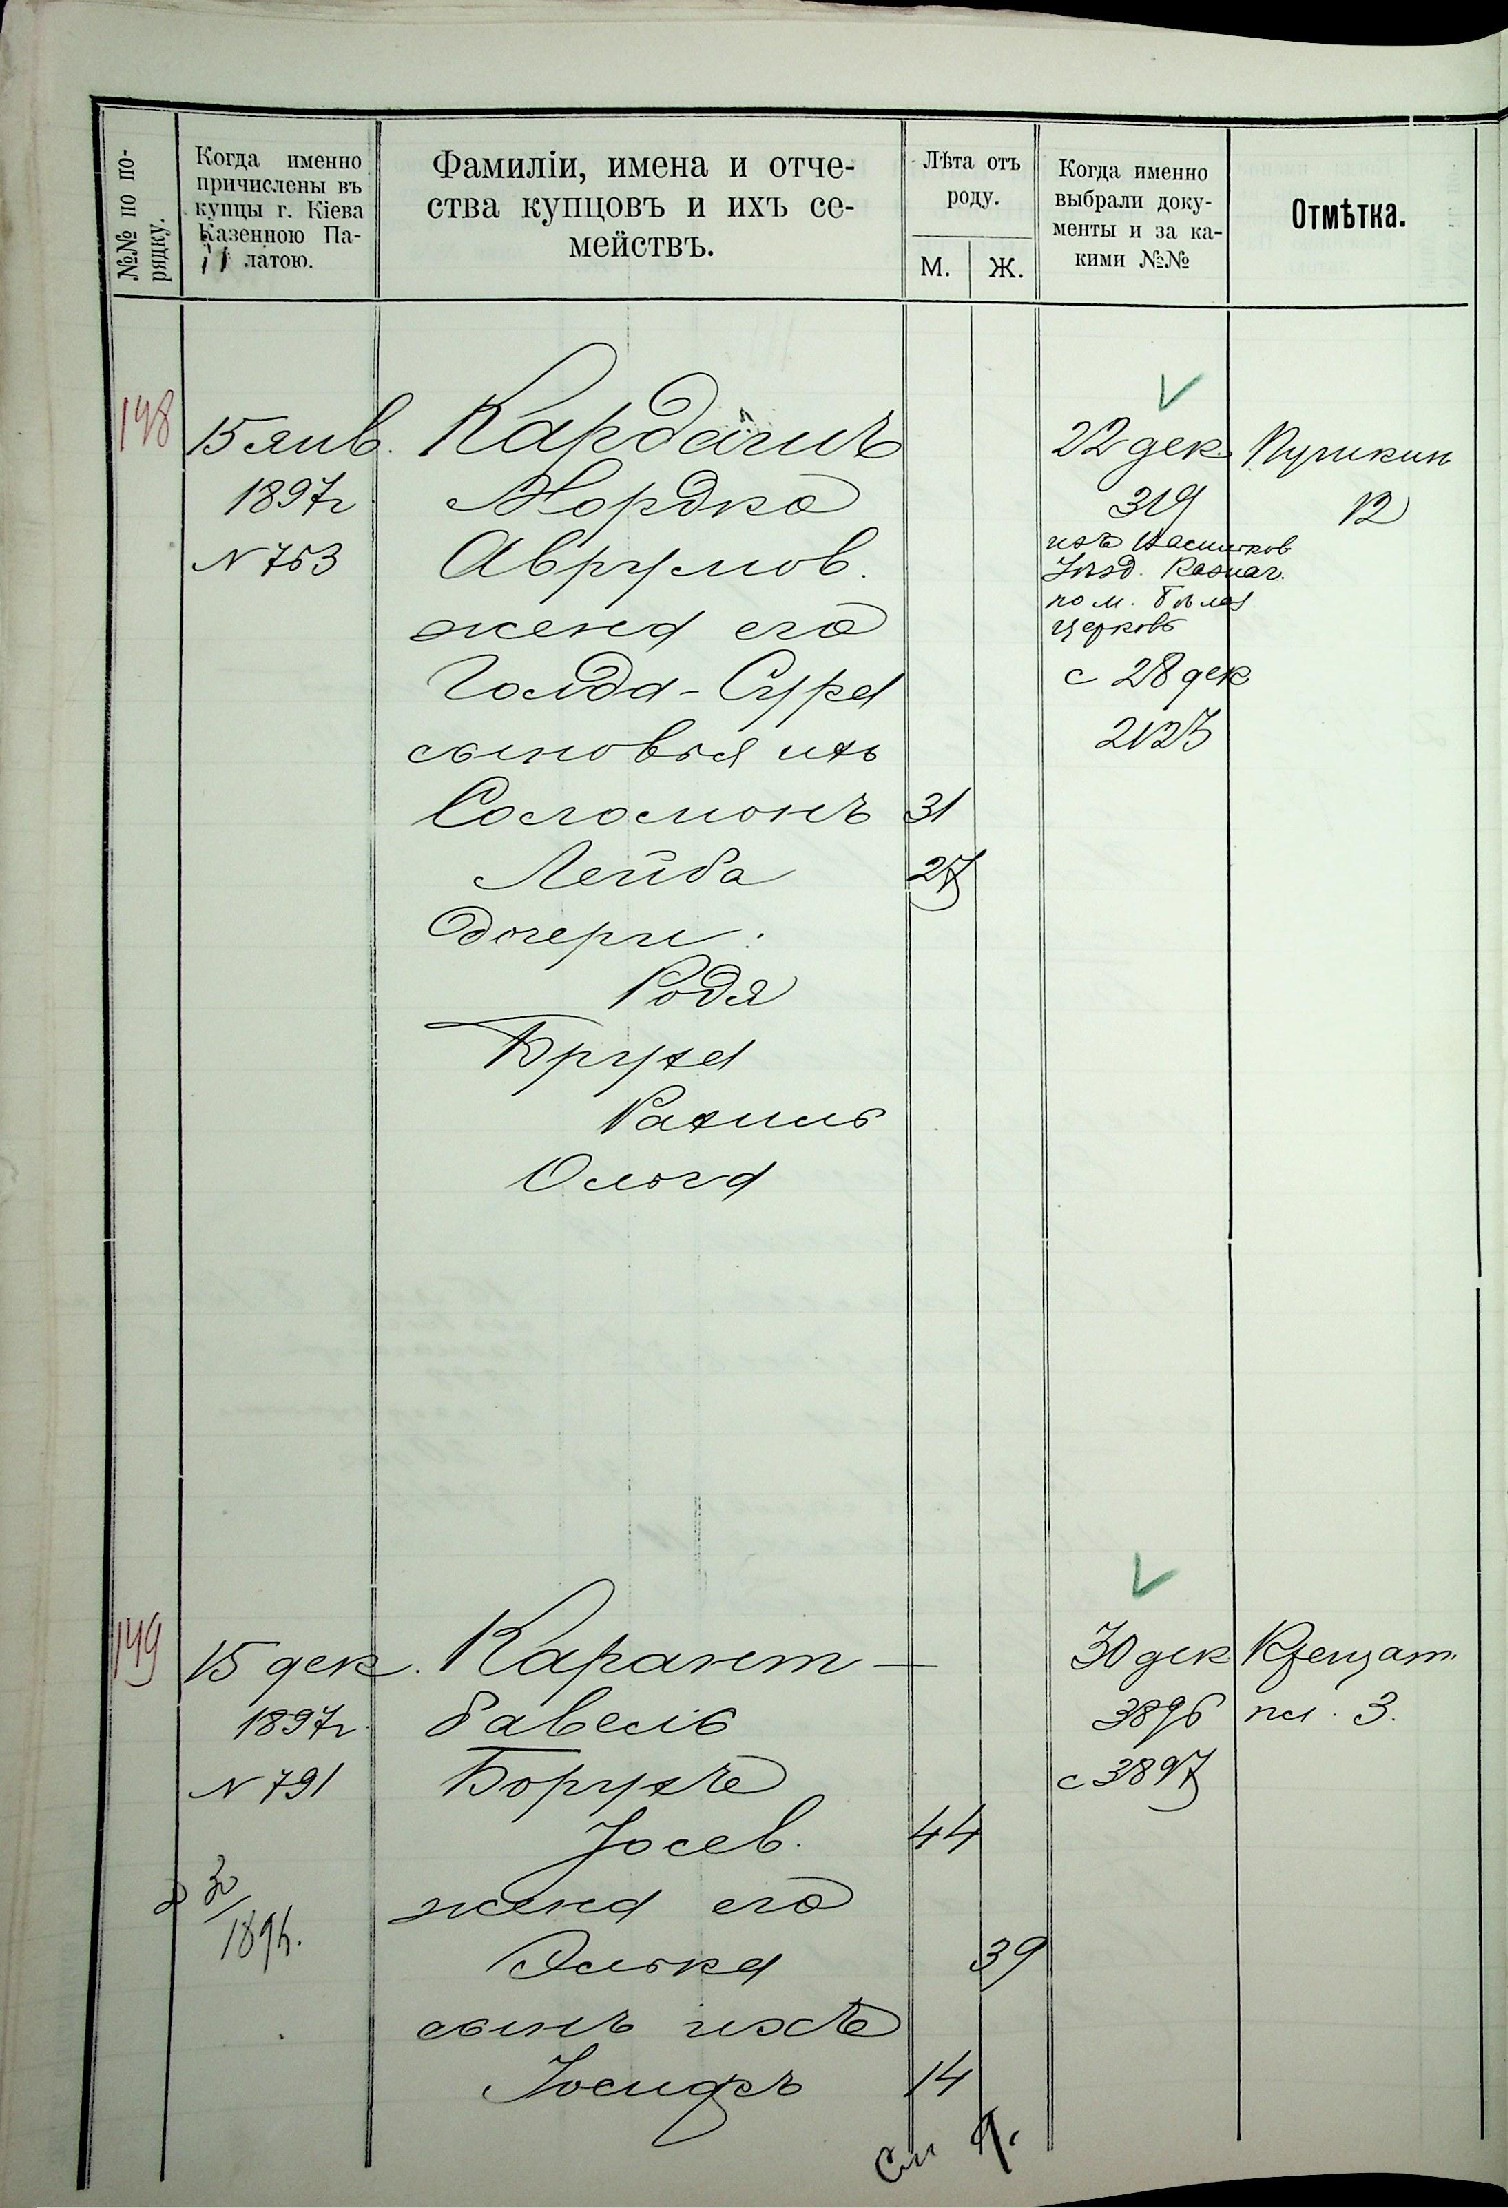 №№ по по-
рядку.
Когда именно
причислены въ
купцы г. Кіева
Казенною Па-
латою.
Фамиліи, имена и отче-
ства купцовъ и ихъ се-
мействъ.
Лѣта отъ
роду.
М.
Ж.
Когда именно
выбрали доку-
менты и за ка-
кими №№
Отмѣтка.
148
15 янв.
1897г
N 753
Кардашъ
Мордко
Аврумов.
жена его
Голда-Сура
сыновья ихъ
Соломонъ 31
Лейба 27
Дочери:
Родя
Бруха
Рахиль
Ольга
22 дек.
319
изъ Васильков
Уѣзд. Казнач.
по м. Бѣлая
Церковь
с 28 дек
2123
Пушкин
12
149
15 дек.
1897г.
N 791
30
Карант-
бавель
Борухъ
Іосев. 44
жена его
Элька 39
сынъ ихъ
Іосифъ 14
30 дек
3896
с 3897
Крещат.
пл. 3.